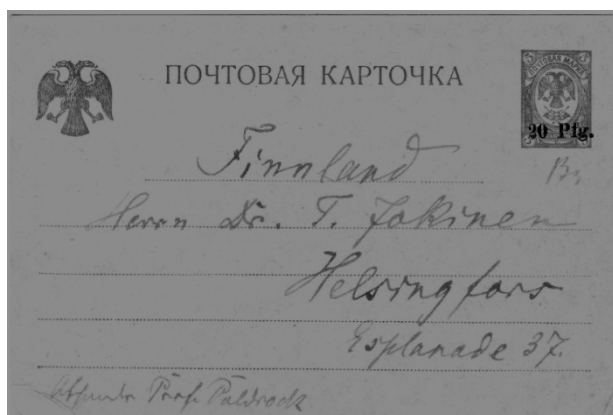 ПОЧТОВАЯ КАРТОЧКА
ПОЧТОВАЯ МАРКА
20 Pfg.
Finnland
Herrn Dr. T. Jokinen
Helsingfors
Esplanade 37.
Prof. Paldrock